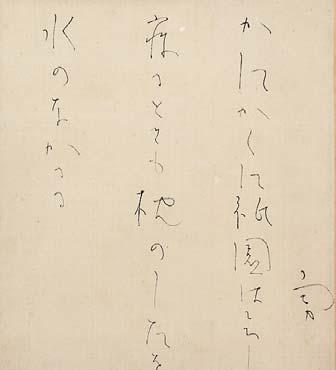 勇
かにかくに祇園はこひし
寐るときも枕のしたを
水のなかるる